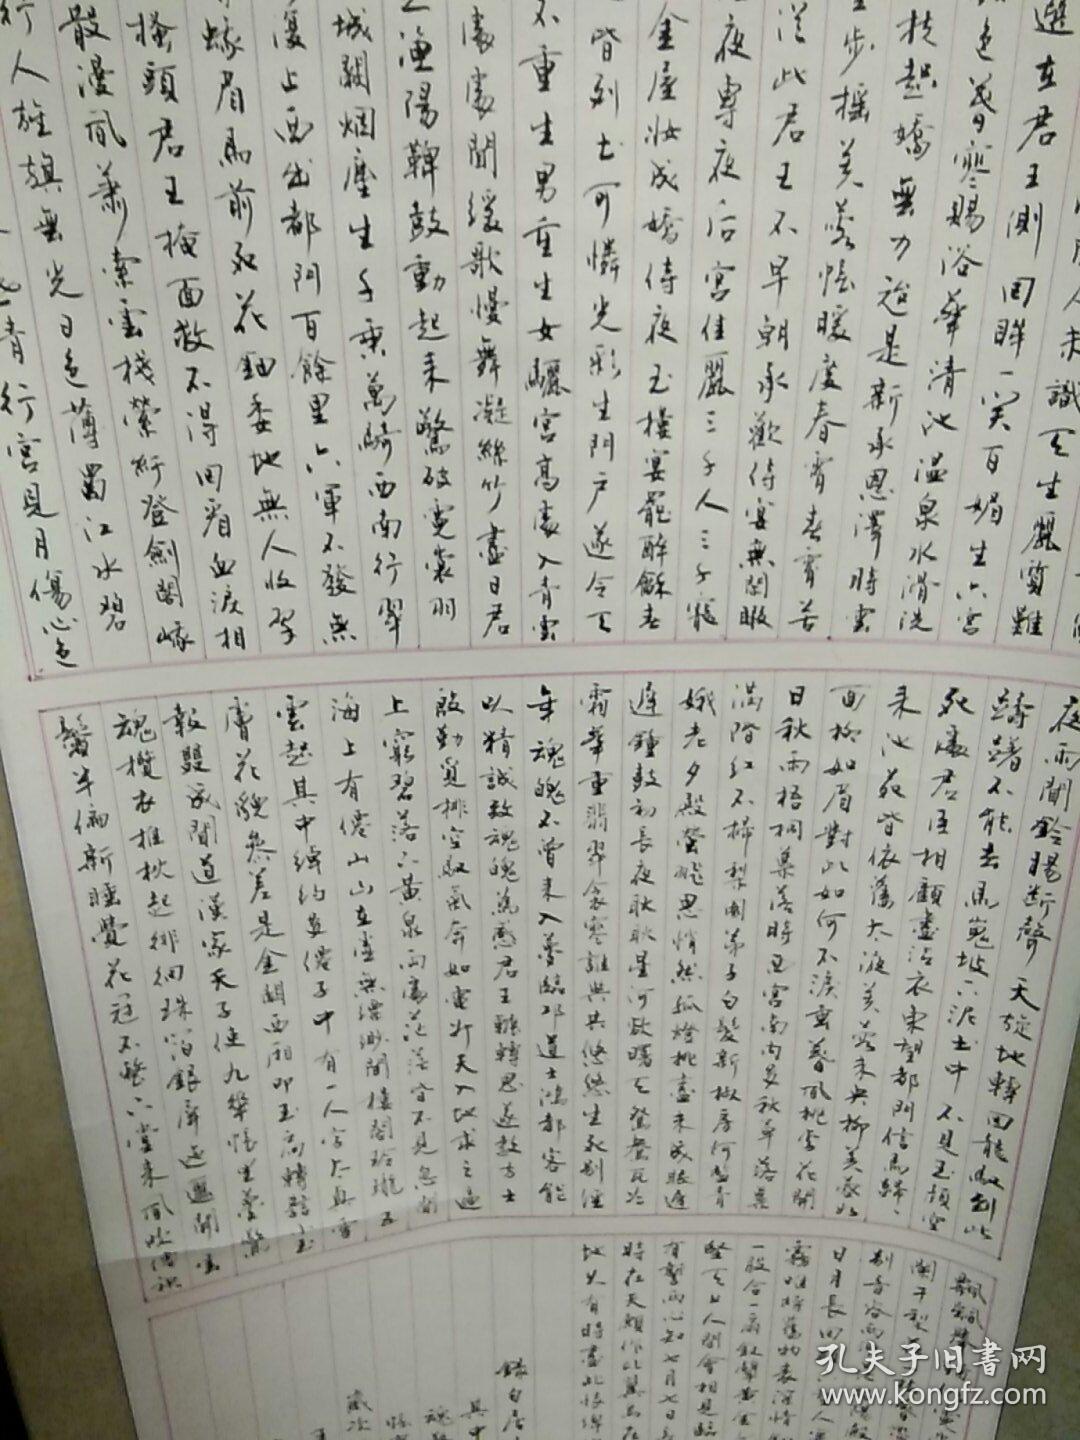 選在君王側回眸一笑百媚生六宮
色春寒賜浴華清池溫泉水滑洗
扶起嬌無力始是新承恩澤時雲
步搖芙蓉帳暖度春宵春宵苦
從此君王不早朝承歡侍宴無閑暇
夜專夜后宮佳麗三千人三千寵
金屋妝成嬌侍夜玉樓宴罷醉和春
皆列土可憐光彩生門戶遂令天
不重生男重生女驪宮高處入青雲
處處聞緩歌慢舞凝絲竹盡日君
漁陽鞞鼓動起來驚破霓裳羽
城闕烟塵生千乘萬騎西南行翠
復止西出都門百餘里六軍不發無
蛾眉馬前死花鈿委地無人收翠
搔頭君王掩面救不得回看血淚相
散漫風蕭索雲棧縈紆登劍閣峨
行人旌旗無光日色薄蜀江水碧
青行宮見月傷心色
夜雨聞鈴腸斷聲天旋地轉回龍馭到此
躊躇不能去馬嵬坡下泥土中不見玉顏空
死處君臣相顧盡沾衣東望都門信馬歸
來池苑皆依舊太液芙蓉未央柳芙蓉如
面柳如眉對此如何不淚垂春風桃李花開
日秋雨梧桐葉落時西宮南內多秋草落葉
滿階紅不掃梨園弟子白髮新椒房阿監青
娥老夕殿螢飛思悄然孤燈挑盡未成眠遲
遲鐘鼓初長夜耿耿星河欲曙天鴛鴦瓦冷
霜華重翡翠衾寒誰與共悠悠生死別經
年魂魄不曾來入夢臨邛道士鴻都客能
以精誠致魂魄為感君王輾轉思遂教方士
殷勤覓排空馭氣奔如電升天入地求之遍
上窮碧落下黃泉兩處茫茫皆不見忽聞
海上有僊山山在虛無縹緲間樓閣玲瓏五
雲起其中綽約多僊子中有一人字太真雪
膚花貌參差是金闕西廂叩玉扃轉教小玉
報雙成聞道漢家天子使九華帳里夢驚
魂攬衣推枕起徘徊珠箔銀屏迤邐開雲
鬢半偏新睡覺花冠不整下堂來風吹僊袂
一股合一扇釵擘黃金
堅天上人間會相見臨
有誓兩心知七月七日長
時在天願作比翼鳥在
地久有時盡此恨綿
錄白居
歲次
孔夫子旧书网
www.kongfz.com